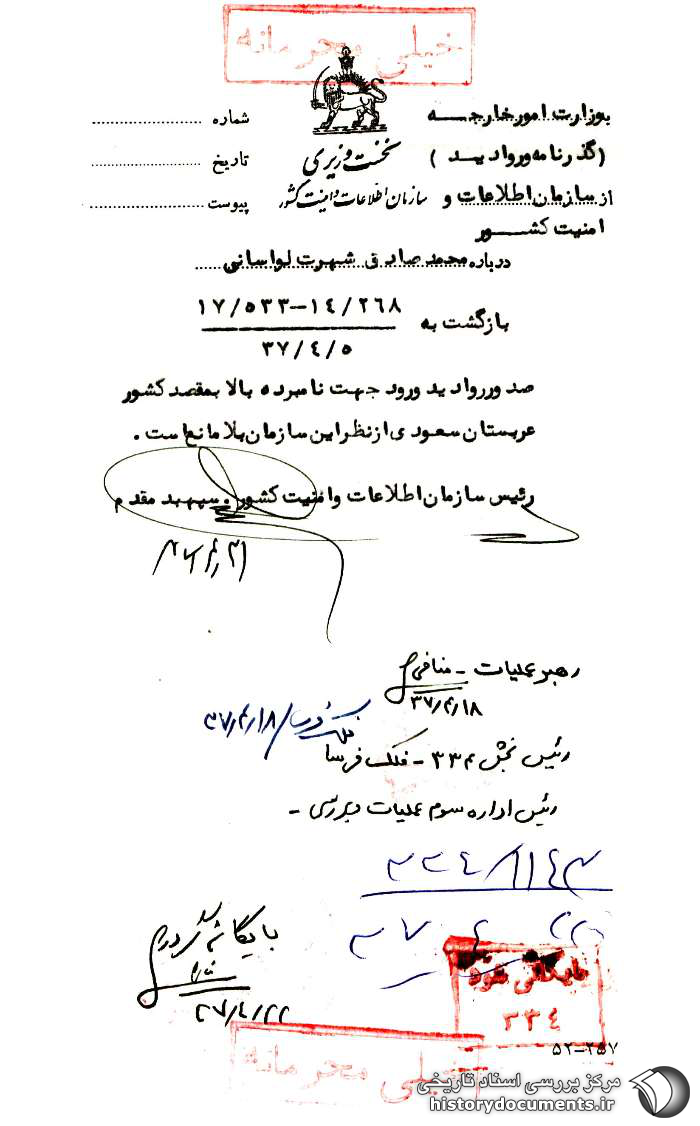 خیلی محرمانه
بوزارت امورخارجه
شماره
(گذرنامه وروادید)
نخست وزیری
تاریخ
از سازمان اطلاعات و
سازمان اطلاعات و امنیت کشور
پیوست
امنیت کشور
درباره محمد صادق شهرت لواسانی
بازگشت به ۱۷/۵۳۳–۱۴/۲۶۸
۳۷/۴/۵
صدور روادید ورود جهت نامبرده بالا بمقصد کشور
عربستان سعودی از نظر این سازمان بلامانع است .
رئیس سازمان اطلاعات وامنیت کشور . سپهبد مقدم
رهبر عملیات - منافی
۳۷/۴/۱۸
۳۷/۴/۱۸
رئیس بخش ۳۳۴ - فلک فرسا
رئیس اداره سوم عملیات و بررسی -
بایگانی شود
۳۳۴
۳۷/۴/۲۲
۵۲-۲۵۷
خیلی محرمانه
مرکز بررسی اسناد تاریخی
historydocuments.ir